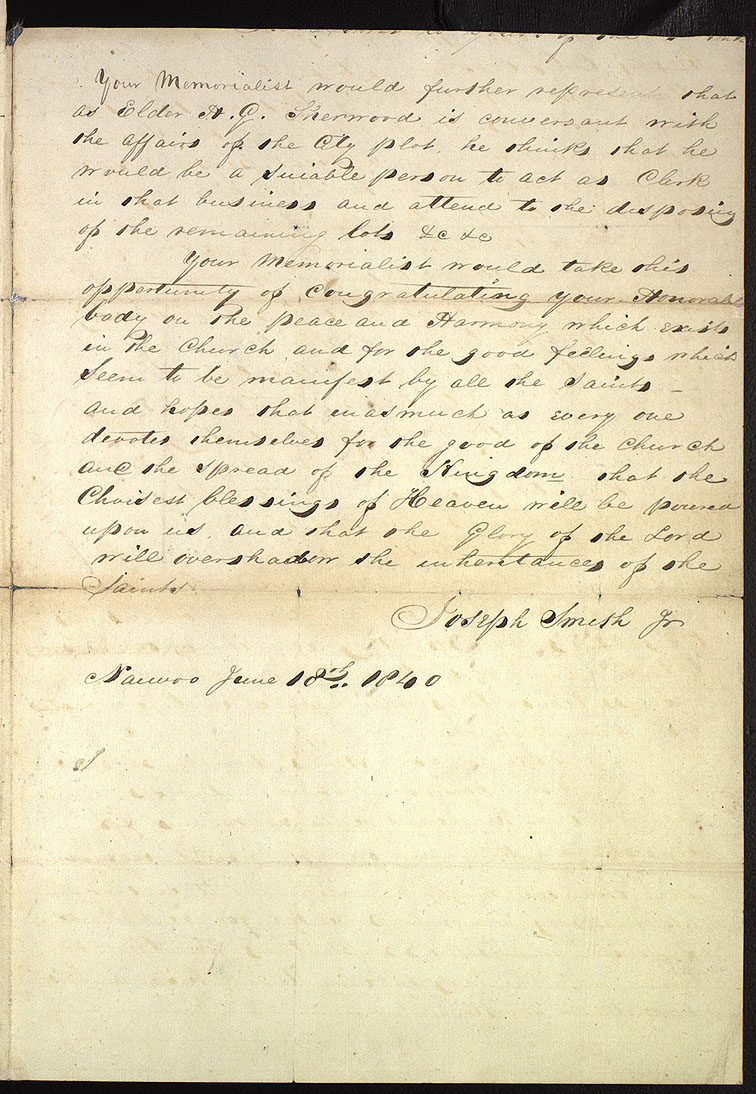 of the
Your Memorialist would further represent that
as Elder H. G. Sherwood is conversant with
the affairs of the City plot, he thinks that he
would be a suiable person to act as Clerk
in that business and attend to the disposing
of the remaining lots &c &c
Your Memorialist would take this
oppertunity of congratulating your Honorabl
body on the peace and Harmony which exists
in the Church and for the good feelings which
seem to be manifest by all the Saints –
and hopes that inasmuch as every one
devotes themselves for the good of the church
and the spread of the Kingdom that the
Choisest blessings of Heaven will be poured
upon us, and that the Glory of the Lord
will overshadow the inheritances of the
Saints
Joseph Smith Jr
Nauvoo June 18th. 1840